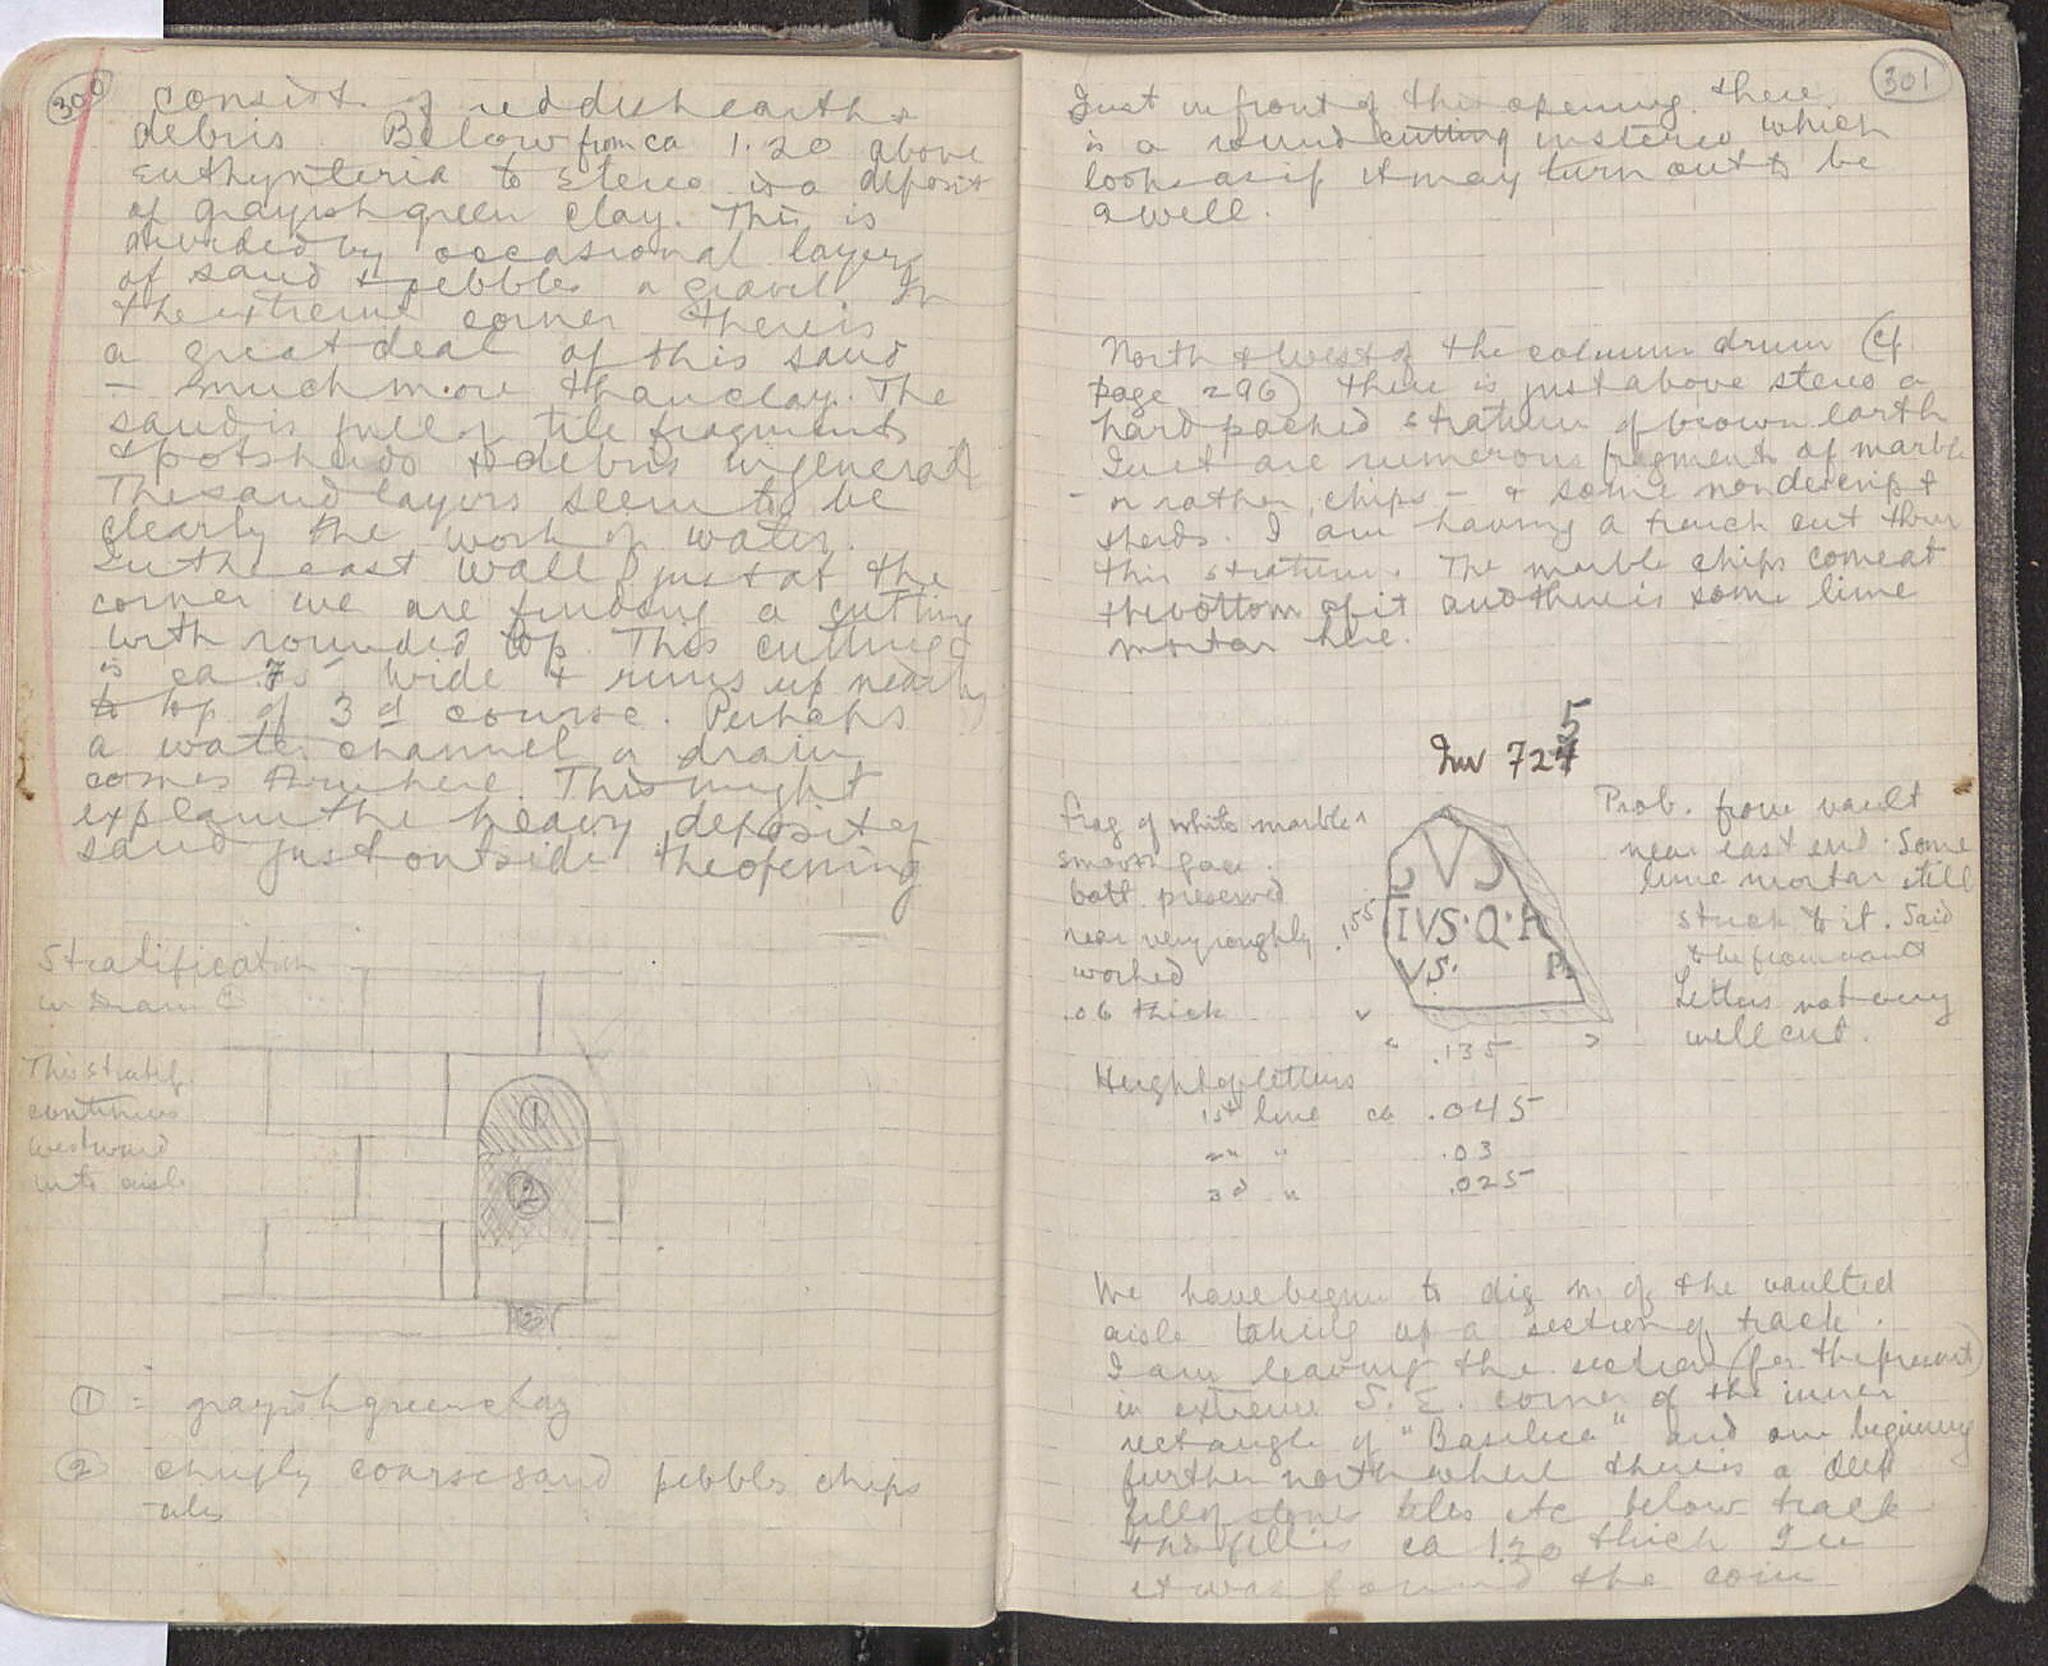 300
consists of reddish earth &
debris. Below from ca 1.20 above
Euthynteria to stereo is a deposit
of grayish green clay. This is
divided by occasional layers
of sand & pebbles or gravel. In
the extreme corner there is
a great deal of this sand
– much more than clay. The
sand is full of tile fragments
& potsherds & debris in general
The sand layers seem to be
clearly the work of water.
In the east wall just at the
corner we are finding a cutting
with rounded top. This cutting
is ca .75 wide & runs up nearly
to top of 3d course. Perhaps
a water channel or drain
comes thru here. This might
explain the heavy deposit of
sand just outside the opening
Stratification
in Drain
This stratif.
continues
westward
into aisle
1
2
3
① = grayish green clay
② chiefly coarse sand pebbles chips
tiles
301
Just in front of this opening there
is a round cutting in stereo which
looks as if it may turn out to be
a well.
North & West of the column drum (cf.
page 296) there is just above stereo a
hard packed stratum of brown earth
In it are numerous fragments of marble
– or rather, chips – & some nondescript
sherds. I am having a trench cut thru
this stratum. The marble chips come at
the bottom of it and there is some lime
mortar here.
5
Inv 724
frag of white marble
smooth face.
bott. preserved
rear very roughly
worked
.06 thick
.155
V
IVS·Q·
VS·
P
.135
Prob. from vault
near east end. Some
lime mortar still
stuck to it. Said
to be from vault
Letters not very
well cut.
Height of letters
1st line ca .045
2nd " .03
3d " .025
We have begun to dig n. of the vaulted
aisle taking up a section of track.
I am leaving the section (for the present)
in extreme S. E. corner of the inner
rectangle of "Basilica" and am beginning
further north where there is a deep
fill of stones tiles etc below track
This fill is ca 1.20 thick In
it was found the coin